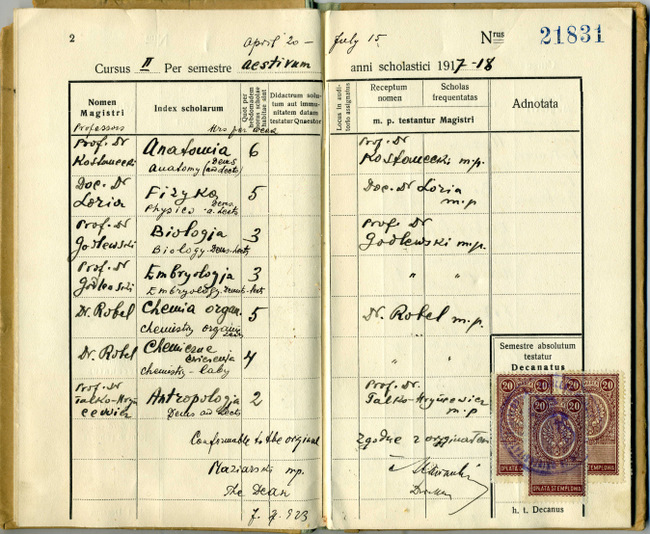 2
april 20 – July 15
Nrus 21831
Cursus II Per semestre aestivum anni scholastici 1917-18
Nomen Magistri
Professors
Index scholarum
Quot per hebdomadem horas scholae habitae sint
Hrs per week
Didactrum solutum aut immunitatem datam testatur Quaestor
Locus in auditorio assignatus
Receptum nomen
Scholas frequentatas
m. p. testantur Magistri
Adnotata
Prof. Dr Kostanecki
Anatomia 6
Anatomy (Dems and Lects)
Prof. Dr Kostanecki m.p.
Doc. Dr Loria
Fizyka 5
Physics Dems. a. Lects
Doc. Dr Loria m.p
Prof. Dr Godlewski
Biologia 3
Biology Dems. Lects
Prof. Dr Godlewski m.p.
Prof. Dr
Embryologia 3
Embryology Lects
" "
Dr. Robel
Chemia organ. 5
Chemistry organic
Dr. Robel m.p.
Dr. Robel
Chemiczne ćwiczenia 4
Chemistry - Laby
" "
Prof. Dr Talko-Hryncewicz
Antropologia 2
Dems and Lects
Prof. Dr. Talko-Hryncewicz m.p
Semestre absolutum testatur
Decanatus
20 20 20 20
20 20
OPŁATA STEMPLOWA
Conformable to the original
Zgodne z oryginałem
Maziarski mp.
The Dean
Dziekan
h. t. Decanus